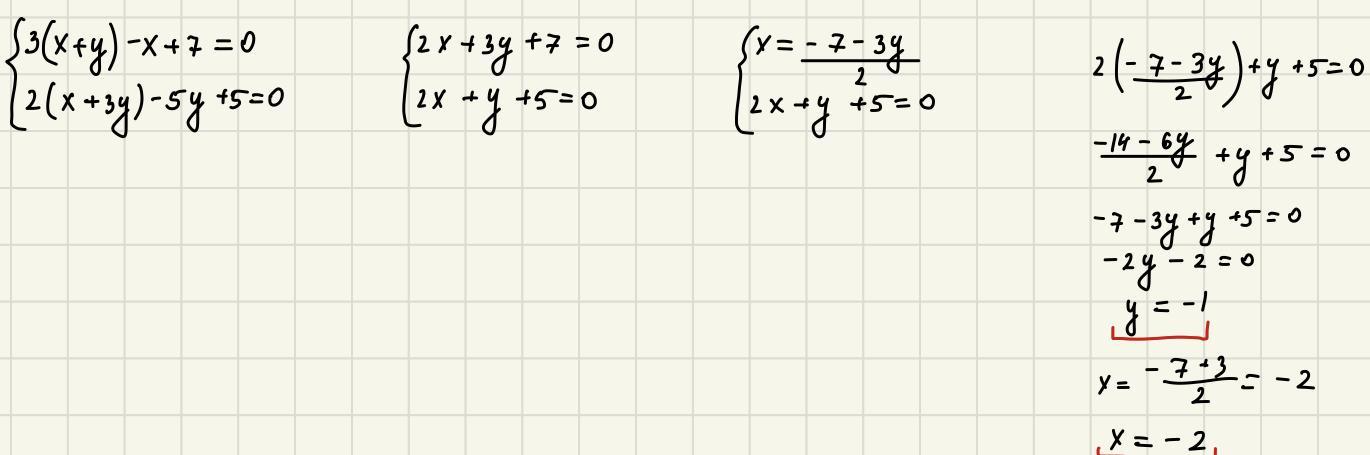 3(x+y) -x+7 = 0
2(x+3y)-5y+5=0
2x+3y+7=0
2x+y+5=0
x = (-7-3y)/2
2x+y+5=0
2((-7-3y)/2)+y+5=0
(-14-6y)/2 +y+5=0
-7-3y+y+5=0
-2y-2=0
y = -1
x = (-7+3)/2 = -2
x = -2